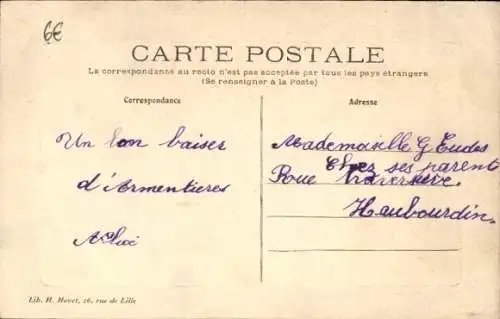 6€
CARTE POSTALE
La correspondance au recto n'est pas acceptée par tous les pays étrangers
(Se renseigner à la Poste)
Correspondance
Adresse
Un bon baiser
d'Armentieres
Mademoiselle G Eudes
Chez ses parent
Rue
Haubourdin.
Lib. H. Hovet, 16, rue de Lille